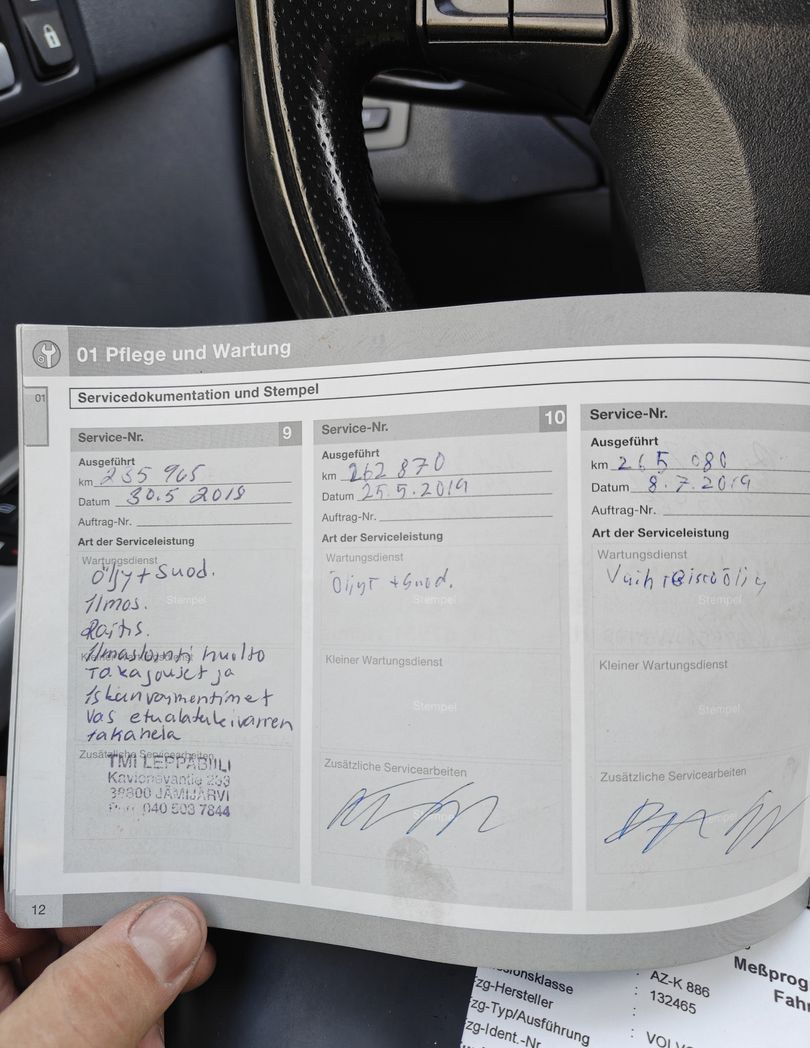 01 Pflege und Wartung
01
Servicedokumentation und Stempel
Service-Nr. 9
Ausgeführt
km 235 965
Datum 30.5 2018
Auftrag-Nr.
Art der Serviceleistung
Wartungsdienst
Öljy + Suod.
Ilmos.
Raitis.
Stempel
Ilmastointi huolto
Takajouset ja
Iskunvaymentimet
Vas etualatukivarren
takahela
Zusätzliche Servicearbeiten
TMI LEPPÄBIILI
38800 JÄMIJÄRVI
040 503 7844
Service-Nr. 10
Ausgeführt
km 262 870
Datum 25.5.2019
Auftrag-Nr.
Art der Serviceleistung
Wartungsdienst
Öljyt + Suod.
Stempel
Kleiner Wartungsdienst
Stempel
Zusätzliche Servicearbeiten
Service-Nr.
Ausgeführt
km 265 080
Datum 8.7.2019
Auftrag-Nr.
Art der Serviceleistung
Wartungsdienst
Stempel
Kleiner Wartungsdienst
Stempel
Zusätzliche Servicearbeiten
12
Meßprog
Fahr
: AZ-K 886
zg-Hersteller : 132465
zg-Typ/Ausführung
zg-Ident.-Nr : VOLV